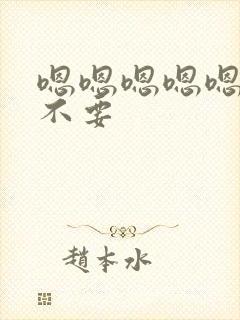 嗯嗯嗯嗯嗯
不要
趙本水